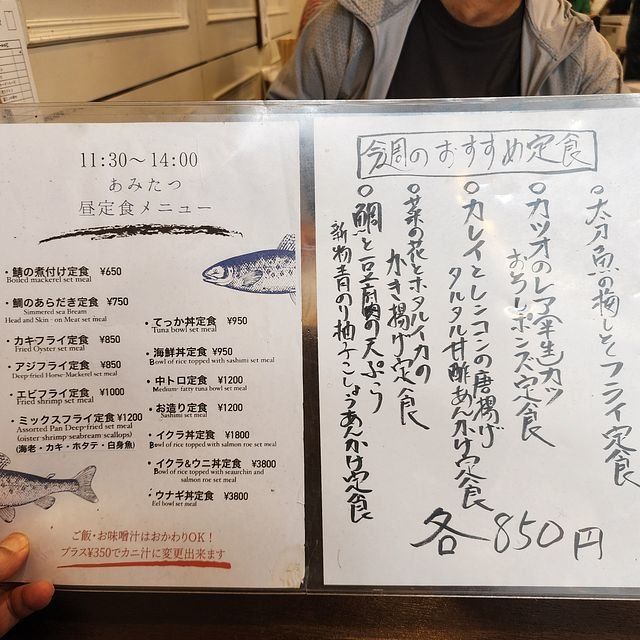 11:30～14:00
あみたつ
昼定食メニュー
・鯖の煮付け定食 ¥650
Boiled mackerel set meal
・鯛のあらだき定食 ¥750
Simmered sea Bream
Head and Skin - on Meat set meal
・カキフライ定食 ¥850
Fried Oyster set meal
・アジフライ定食 ¥850
Deep-fried Horse-Mackerel set meal
・エビフライ定食 ¥1000
Fried shrimp set meal
・ミックスフライ定食 ¥1200
Assorted Pan Deep-fried set meal
(oister·shrimp·seabream·scallops)
(海老・カキ・ホタテ・白身魚)
・てっか丼定食 ¥950
Tuna bowl set meal
・海鮮丼定食 ¥950
Bowl of rice topped with sashimi set meal
・中トロ定食 ¥1200
Medium- fatty tuna bowl set meal
・お造り定食 ¥1200
Sashimi set meal
・イクラ丼定食 ¥1800
Bowl of rice topped with salmon roe set meal
・イクラ&ウニ丼定食 ¥3800
Bowl of rice topped with seaurchin and
salmon roe set meal
・ウナギ丼定食 ¥3800
Eel bowl set meal
ご飯・お味噌汁はおかわりOK！
プラス¥350でカニ汁に変更出来ます
今週のおすすめ定食
○太刀魚の梅しそフライ定食
○カツオのレア(半生)カツ
おろしポンズ定食
○カレイとレンコンの唐揚げ
タルタル甘酢あんかけ定食
○菜の花とホタルイカの
かき揚げ定食
○鯛と豆腐の天ぷら
新物青のり柚子こしょうあんかけ定食
各850円